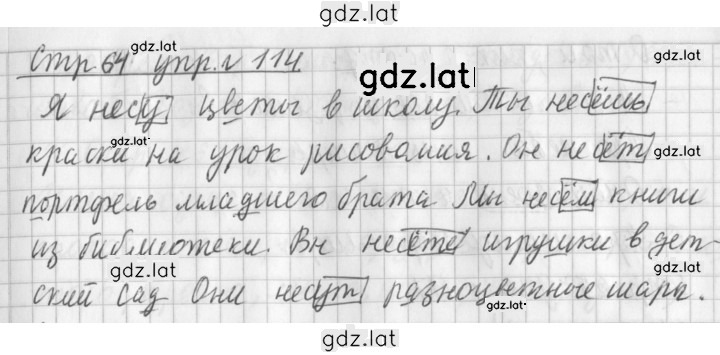 gdz.lat
gdz.lat
gdz.lat
Стр. 64 упр. № 114
gdz.lat
Я несу цветы в школу. Ты несёшь
gdz.lat
gdz.lat
краски на урок рисования. Он несёт
gdz.lat
портфель младшего брата. Мы несём книги
из библиотеки. Вы несёте игрушки в дет-
gdz.lat
gdz.lat
ский сад Они несут разноцветные шары.
gdz.lat
gdz.lat